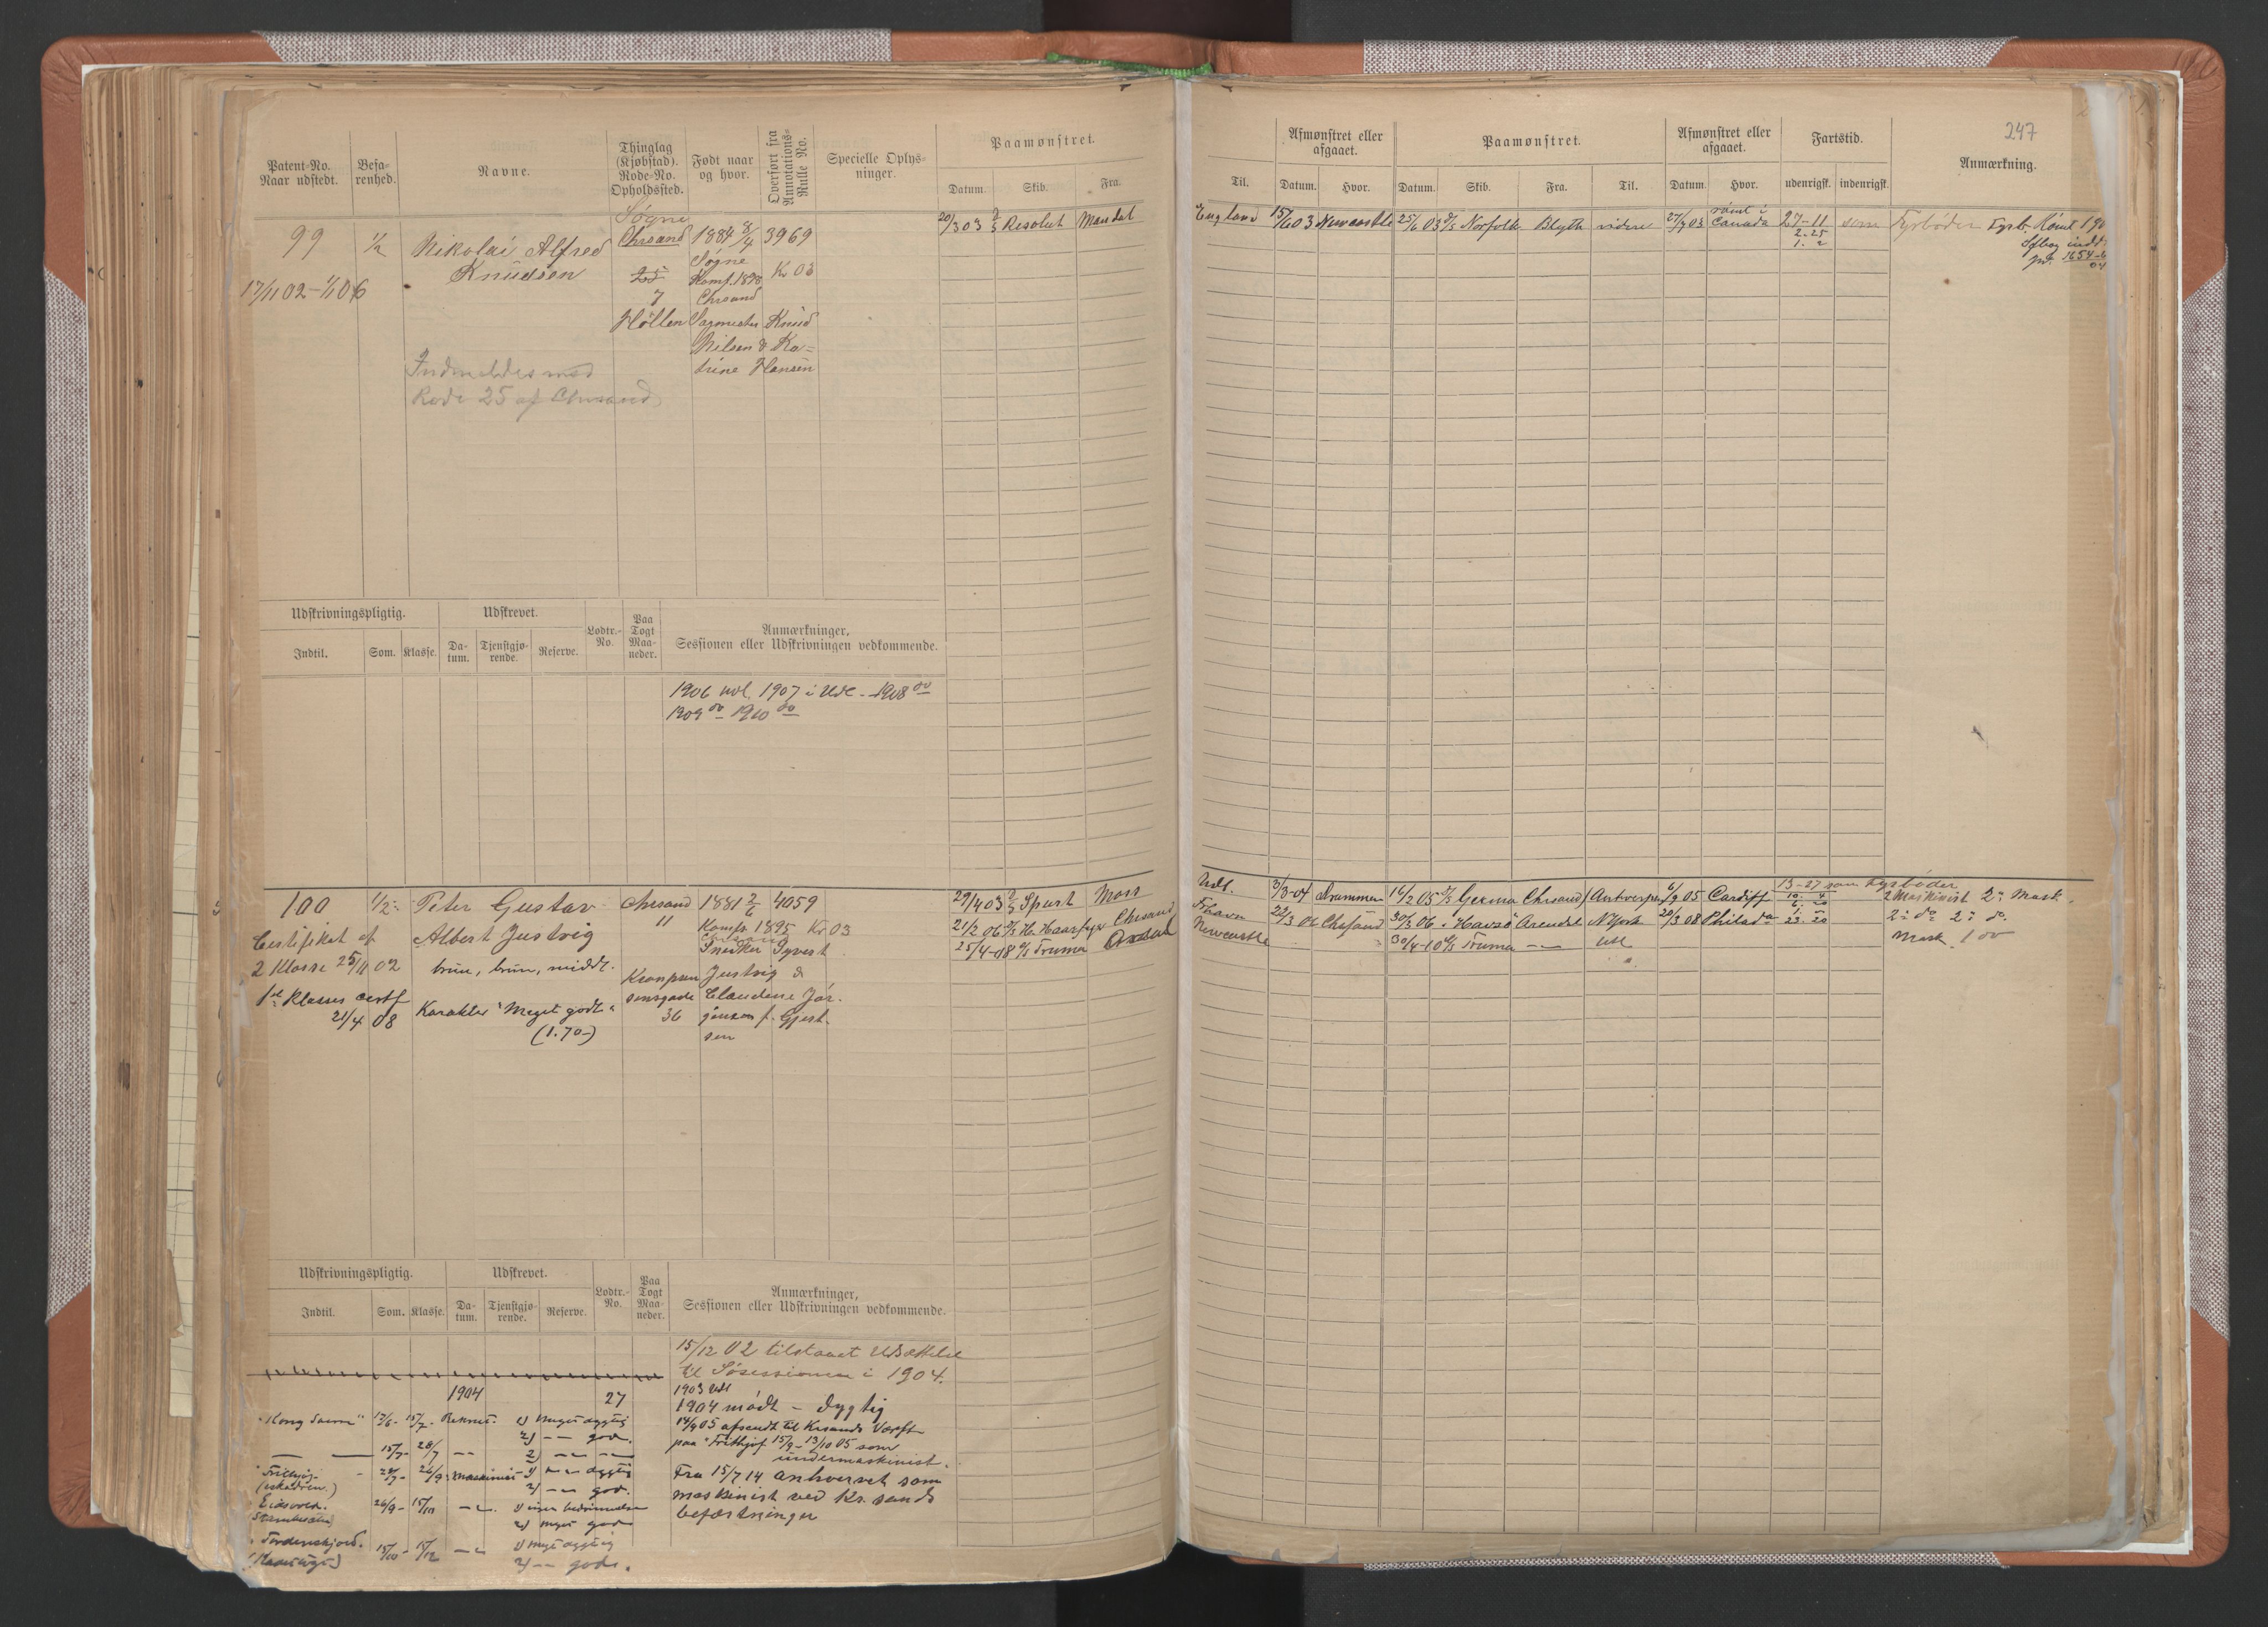 247
Patent-No. Naar udstedt.
Befarenhed.
Navne.
Thinglag (Kjøbstad). Rode-No. Opholdssted.
Født naar og hvor.
Overført fra Annotations-Rulle No.
Specielle Oplysninger.
Paamønstret.
Datum. Skib. Fra. Til.
Afmønstret eller afgaaet.
Datum. Hvor.
Paamønstret.
Datum. Skib. Fra. Til.
Afmønstret eller afgaaet.
Datum. Hvor.
Fartstid.
udenrigsk. indenrigsk.
Anmærkning.
99
17/11 02 - 1/1 06
1/2
Nikolai Alfred
Knudsen
Indmeldes med
Rode 25 af Chrsand
Søgne
Chrsand
7
Høllen
1884 8/4
Søgne
Konf. 1898
Chrsand
Knud
Nilsen & Ka-
trine Hansen
3969
Kr 03
20/3 03 Resolut Mandal
England 15/6 03 Newcastle 25/6 03 D/S Norfolk Blyth videre 27/9 03 rømt i Canada 27-11 som Fyrbøder
2-25
1. 2
Udskrivningspligtig.
Udskrevet.
Lodtr.-No.
Paa Togt Maaneder.
Anmærkninger, Sessionen eller Udskrivningen vedkommende.
Indtil. Som. Klasse. Datum. Tjenstgjørende. Reserve.
1906 udl. 1907 i Udl - 1908 do
1909 do 1910 do
100
1/2
Certifikat af
2 Klasse 25/11 02
1ste Klasses certf
21/4 08
Peter Gustav
Albert Justvig
brun, brun, middl.
Karakter "Meget godt"
(1.70)
Chrsand
11
36
1881 2/6
Konfr 1895
Snedker Syvert
Justvig &
Claudene Jør-
gensen f. Gjert-
sen
4059
Kr 03
29/4 03 Spurt Moss
21/2 06 D/S H. Haarfagr Chrsand
25/4-08 D/S Fruma
Udl. 3/3-04 Drammen 16/2 05 D/S Germa Chrsand Antwerpen 6/9 05 Cardiff 13-27 som Fyrbøder
2 Maskinist 2: Mask.
22/3 06 Chrsand 30/3 06 "Havsø" Arendal NYork 20/3 08 Philada
2: do 2: do.
Newcastle 30/4-10 D/S Fruma Udl
Mask. 1 do
Udskrivningspligtig.
Udskrevet.
Lodtr.-No.
Paa Togt Maaneder.
Anmærkninger, Sessionen eller Udskrivningen vedkommende.
Indtil. Som. Klasse. Datum. Tjenstgjørende. Reserve.
15/12 02 tilstaaet Udsættelse
til Søsessionen i 1904.
1903 Udl
1904 mødt - dygtig
14/9 05 afsendt til Krsands Værft
paa "Frithjof" 15/9 - 13/10 05 som
undermaskinist.
Fra 15/7 14 anhvervet som
maskinist ved Kr. sands
befæstninger
1904
27
17/6 - 15/7 - 1) Meget dygtig
2) — god.
15/7 - 28/7
26/9 - Maskinist 1) — dygtig
2) — god.
Eidsvold. 26/9 - 15/10 1) ingen bedømmelse
2) meget god
Tordenskjold. 15/10 - 15/12 1) meget dygtig
2) — god.